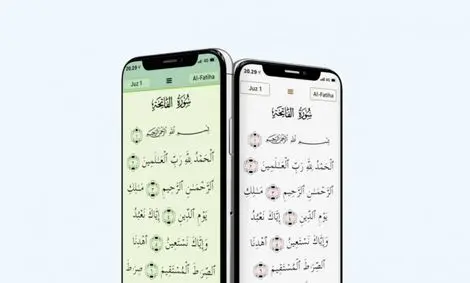 20.29
4G
Juz 1
Al-Fatiha
سُورَةُ الفَاتِحَةِ
بِسْمِ اللَّهِ الرَّحْمَٰنِ الرَّحِيمِ
ٱلْحَمْدُ لِلَّهِ رَبِّ ٱلْعَـٰلَمِينَ
ٱلرَّحْمَـٰنِ ٱلرَّحِيمِ مَـٰلِكِ
يَوْمِ ٱلدِّينِ إِيَّاكَ نَعْبُدُ
وَإِيَّاكَ نَسْتَعِينُ ٱهْدِنَا
ٱلصِّرَٰطَ ٱلْمُسْتَقِيمَ صِرَٰطَ
20.29
4G
Juz 1
Al-Fatiha
سُورَةُ الفَاتِحَةِ
بِسْمِ اللَّهِ الرَّحْمَٰنِ الرَّحِيمِ
ٱلْحَمْدُ لِلَّهِ رَبِّ ٱلْعَـٰلَمِينَ
ٱلرَّحْمَـٰنِ ٱلرَّحِيمِ مَـٰلِكِ
يَوْمِ ٱلدِّينِ إِيَّاكَ نَعْبُدُ
وَإِيَّاكَ نَسْتَعِينُ ٱهْدِنَا
ٱلصِّرَٰطَ ٱلْمُسْتَقِيمَ صِرَٰطَ